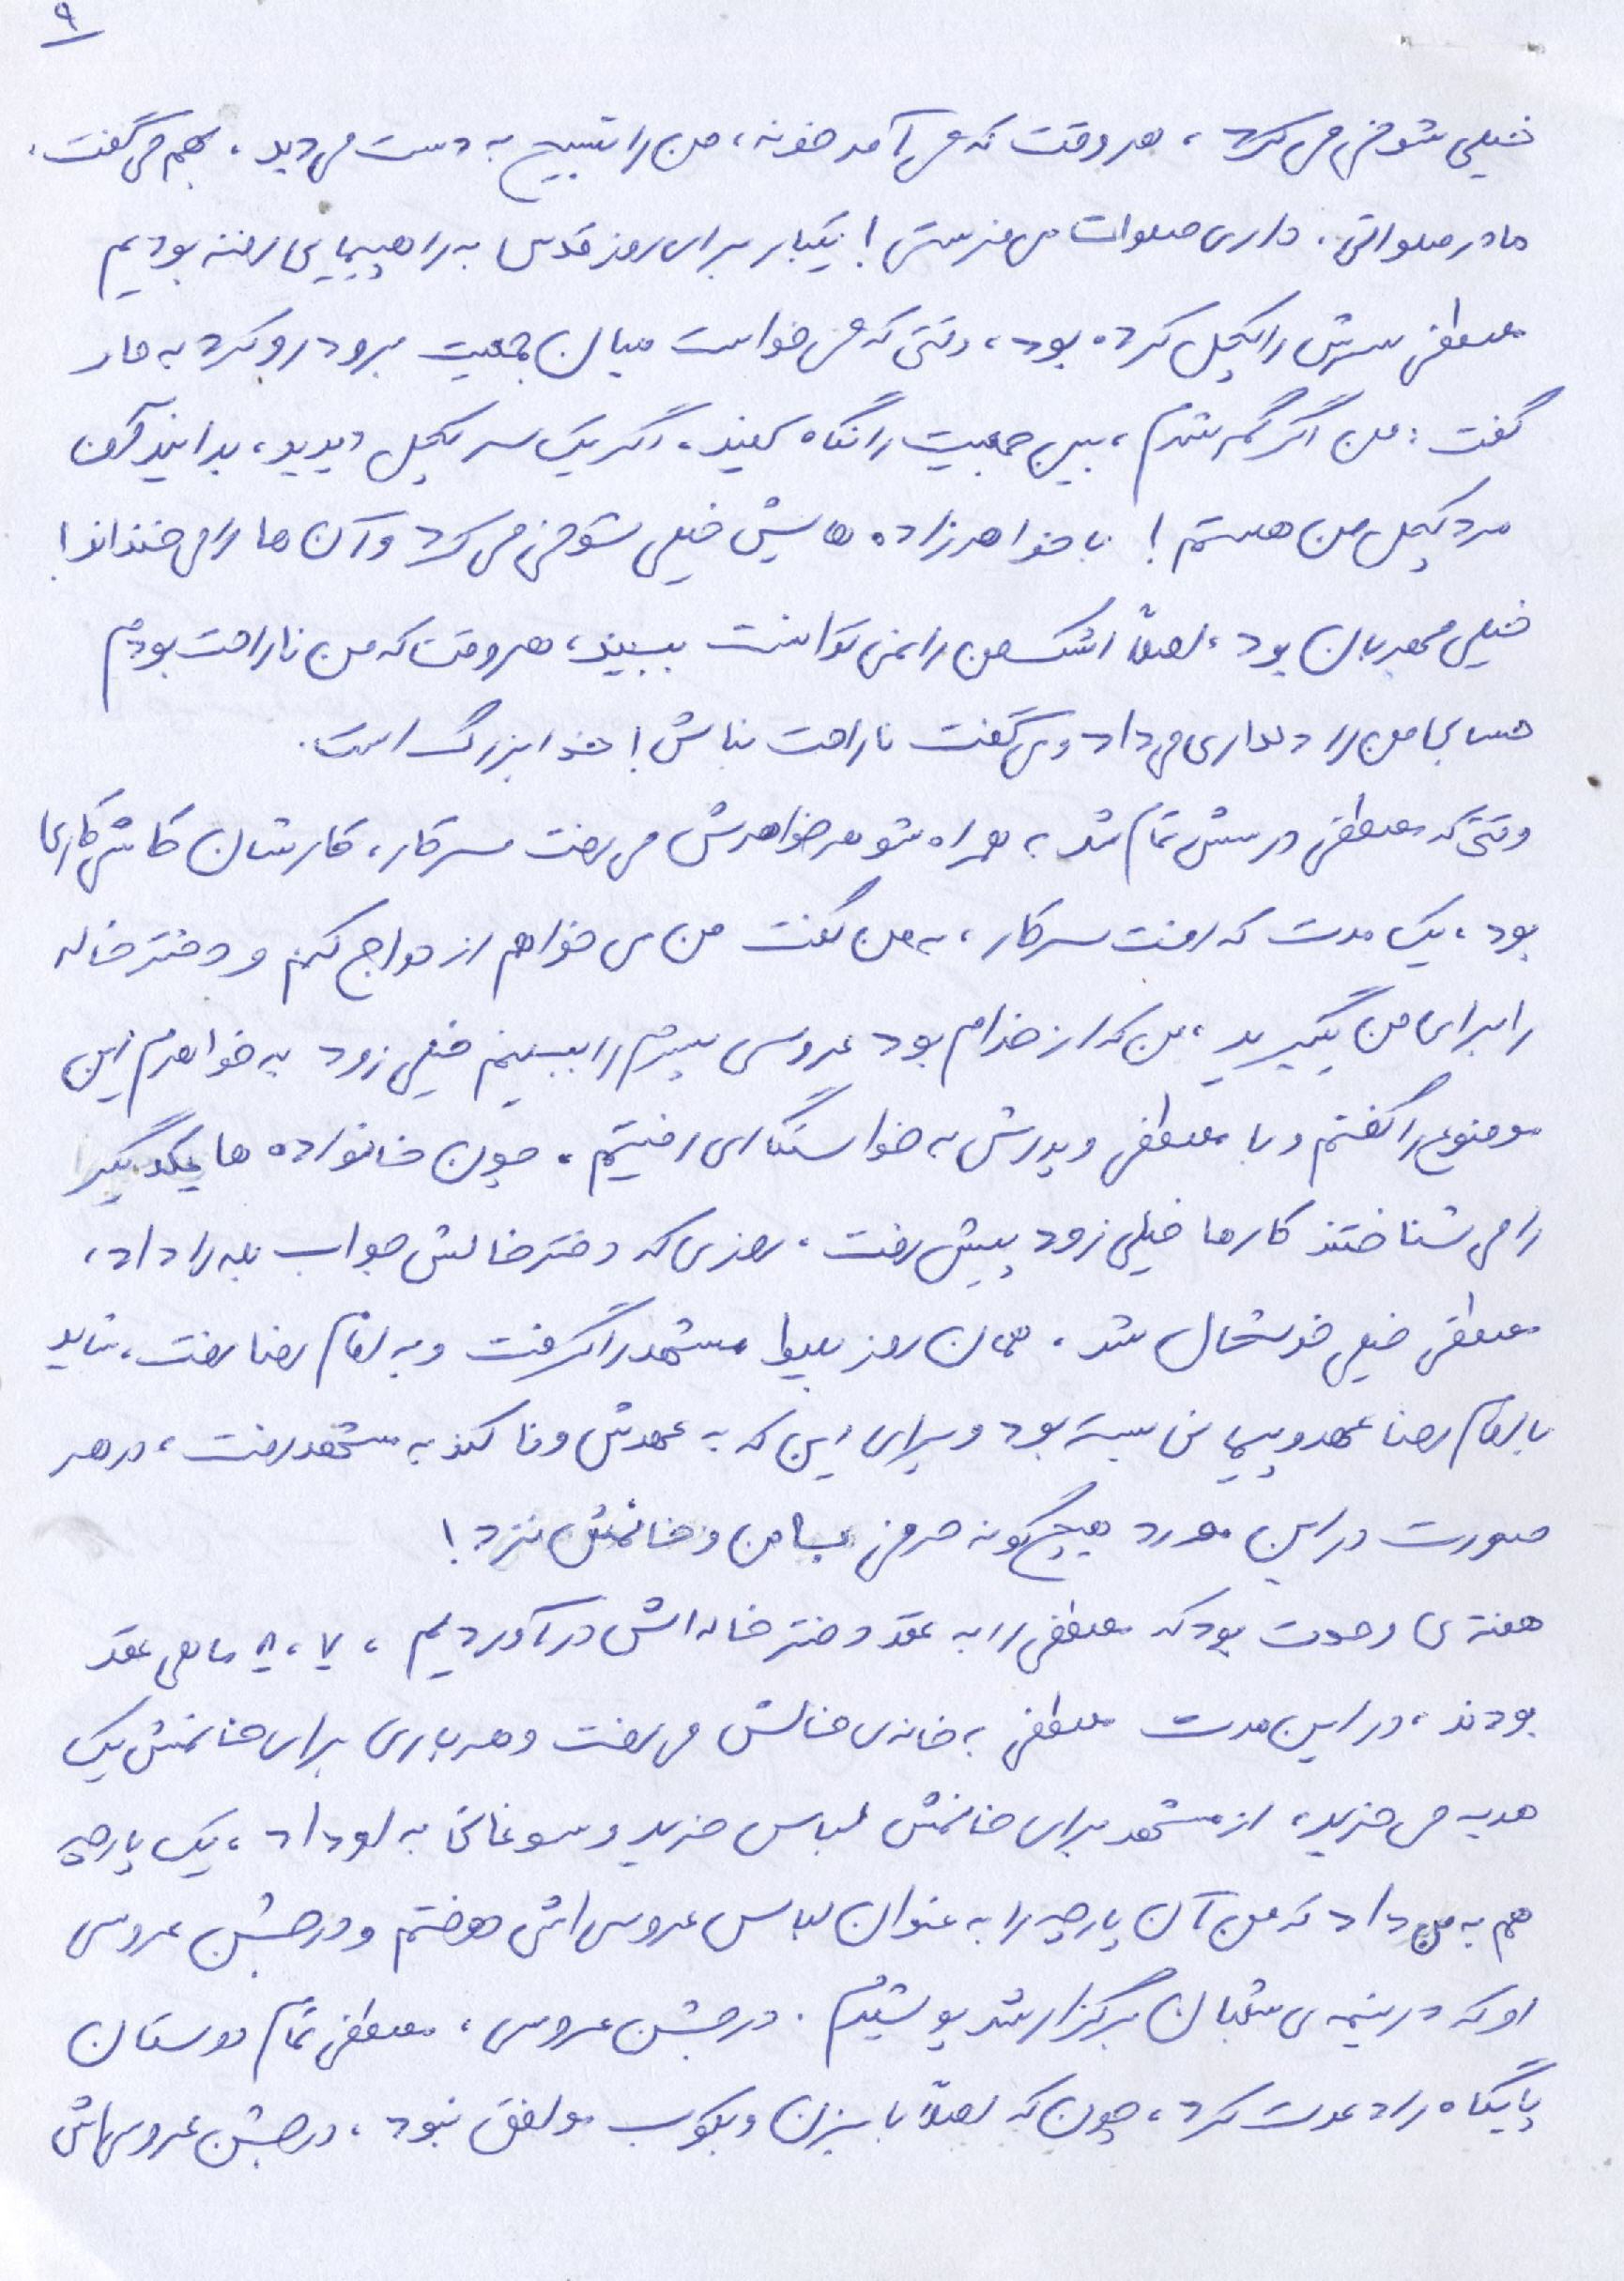 ۹
خیلی شوخی می‌کرد، هر وقت که می‌آمد خونه، من را تسبیح به دست می‌دید. بهم می‌گفت،
مادر صلواتی. داری صلوات می‌فرستی! یکبار برای روز قدس به راهپیمایی رفته بودیم
مصطفی سرش را کچل کرده بود، وقتی که می‌خواست میان جمعیت برود رو کرد به ما و
گفت: من اگر گم شدم، بین جمعیت را نگاه کنید. اگر یک سر کچل دیدید، بدانید آن
مرد کچل من هستم! با خواهرزاده هایش خیلی شوخی می‌کرد و آن ها را می‌خنداند!
خیلی مهربان بود، اصلاً اشک من را نمی‌توانست ببیند، هر وقت که من ناراحت بودم
حسابی من را دلداری می‌داد و می‌گفت ناراحت نباش! خدا بزرگ است.
وقتی که مصطفی درسش تمام شد به همراه شوهر خواهرش می‌رفت سر کار، کارشان کاشی کاری
بود، یک مدت که رفت سر کار، به من گفت من می‌خواهم ازدواج کنم و دختر خاله
را برای من بگیرید، من که از خدام بود عروسی پسرم را ببینم خیلی زود به خواهرم این
موضوع را گفتم و با مصطفی و پدرش به خواستگاری رفتیم. چون خانواده ها یکدیگر
را می‌شناختند کارها خیلی زود پیش رفت، روزی که دختر خالش جواب بله را داد،
مصطفی خیلی خوشحال شد. همان روز بلیط مشهد را گرفت و به امام رضا رفت، شاید
با امام رضا عهد و پیمانی بسته بود و برای این که به عهدش وفا کند به مشهد رفت، در هر
صورت در این مورد هیچ گونه حرفی با من و خانمش نزد!
هفته ی وحدت بود که مصطفی را به عقد دختر خاله اش در آوردیم، ۷، ۸ ماهی عقد
بودند، در این مدت مصطفی به خانه‌ی خالش می‌رفت و هر باری برای خانمش یک
هدیه می‌خرید، از مشهد برای خانمش لباس خرید و سوغاتی به او داد، یک پارچه
هم به من داد که من آن پارچه را به عنوان لباس عروسی اش دوختم و در جشن عروسی
او که در نیمه ی شعبان برگزار شد پوشیدم. در جشن عروسی، مصطفی تمام دوستان
پایگاه را دعوت کرد، چون که اصلاً با بزن و بکوب موافق نبود، در جشن عروسی‌اش